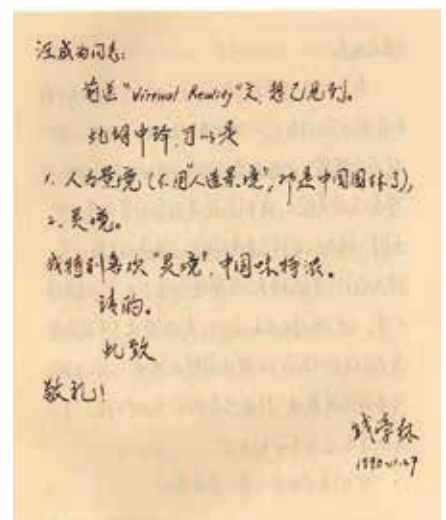 汪成为同志：
前送“Virtual Reality”文，想已见到。
此词中译，可以是
1. 人为景境（不用“人造景境”，那是中国园林了），
2. 灵境。
我特别喜欢“灵境”，中国味特浓。
请酌。
此致
敬礼！
钱学森
1990.11.27